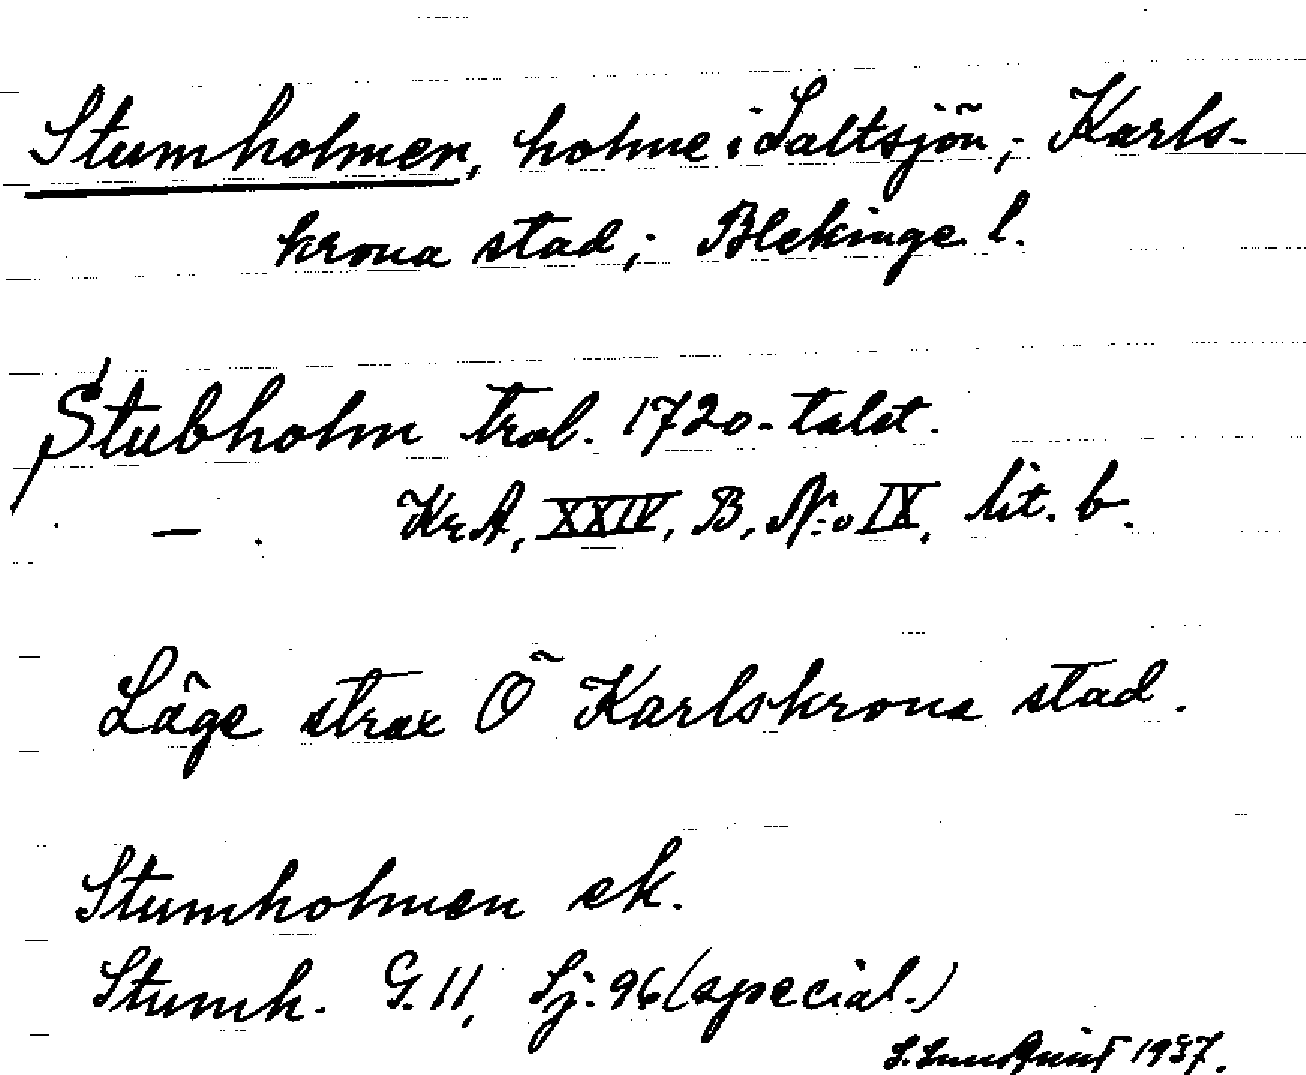 Stumholmen, holme i Saltsjön; Karls-
krona stad; Blekinge l.
Stubholm trol. 1720-talet.
— . KrA, XXIV, B, N:o IX, lit. b.
Läge strax Ö Karlskrona stad.
Stumholmen ek.
Stumh. G. 11, Sj. 96 (special.)
1937.